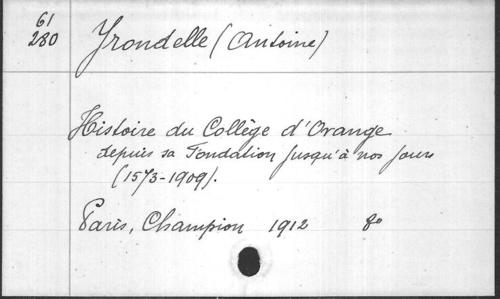 61
280
Yrondelle (Antoine)
Histoire du Collège d'Orange
depuis sa Fondation jusqu'à nos jours
(1573-1909).
Paris, Champion 1912 8°